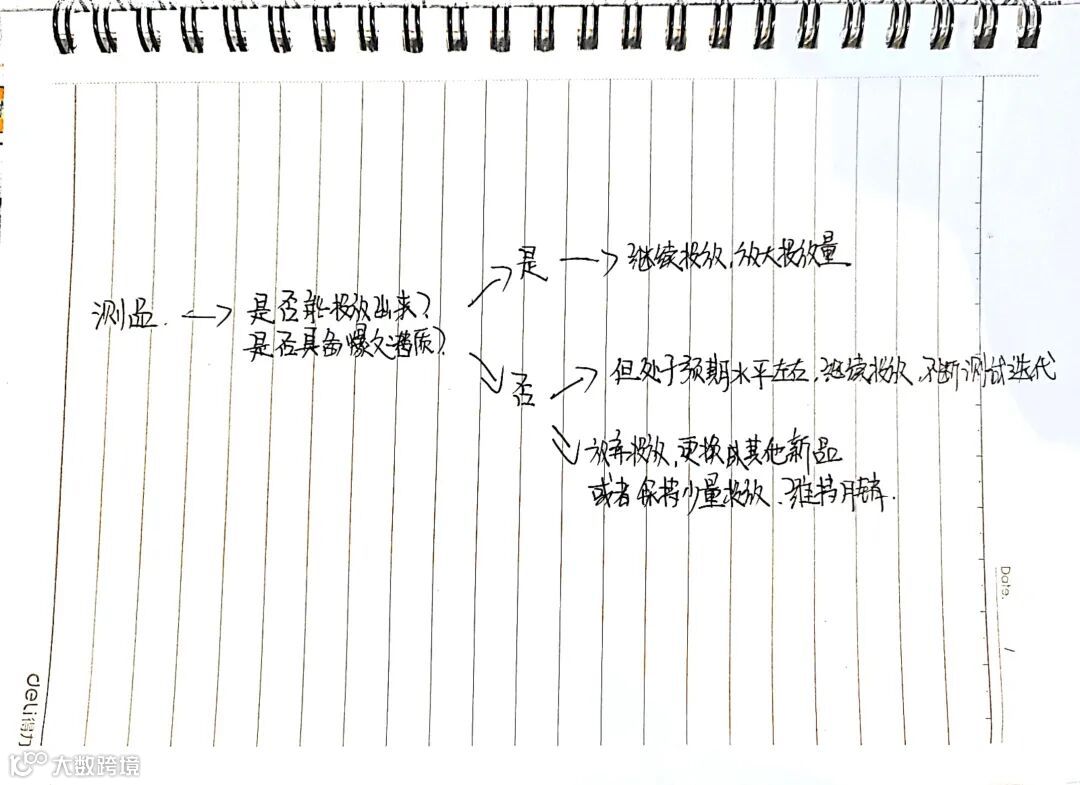 测品.
是否能投放出来?
是否具备爆文潜质?
是
继续投放,放大投放量
否
但处于预期水平左右,继续投放,不断测试迭代
放弃投放,更换成其他新品
或者保持少量投放、维持月销.
Date.
deli得力
大数跨境